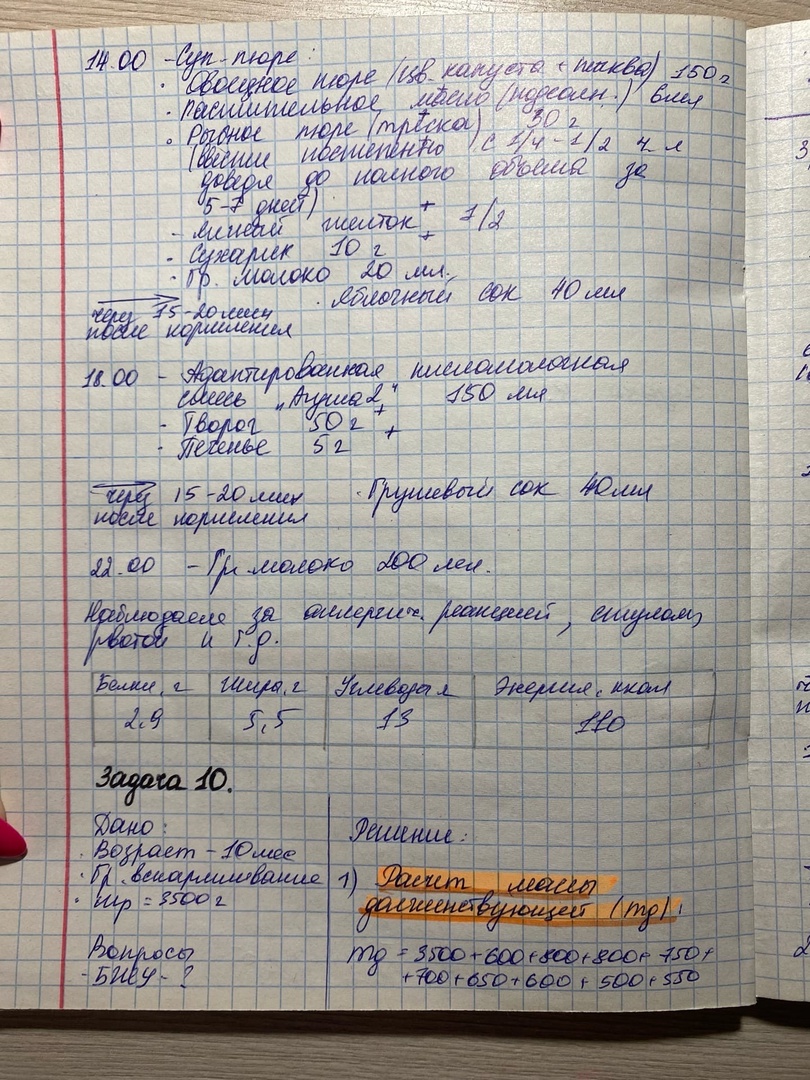 14.00 - Суп-пюре:
· Овощное пюре (цв. капуста + тыква) 150 г
· Растительное масло (подсолн.) 6 мл
· Рыбное пюре (треска) 30 г
(ввести постепенно с 1/4 - 1/2 ч. л
доведя до полного объема за
5-7 дней) +
- Яичный желток 1/2
· Сухарик + 10 г
· Гр. молоко 20 мл.
через 15-20 мин · Яблочный сок 40 мл
после кормления
18.00 - Адаптированная кисломолочная
смесь „Агуша 2" 150 мл
- Творог 50 г +
· Печенье 5 г +
через 15-20 мин · Грушевый сок 40 мл
после кормления
22.00 - Гр. молоко 200 мл.
Наблюдаем за аллергич. реакцией, стулом,
рвотой и т.д.
Белки, г Жиры, г Углеводы г Энергия, ккал
2,9 5,5 13 110
Задача 10.
Дано: Решение:
· Возраст - 10 мес
· Гр. вскармливание 1) Расчет массы
· mр = 3500 г долженствующей (mg)
Вопросы mg = 3500+600+800+800+750+
- БЖУ - ? +700+650+600+500+550